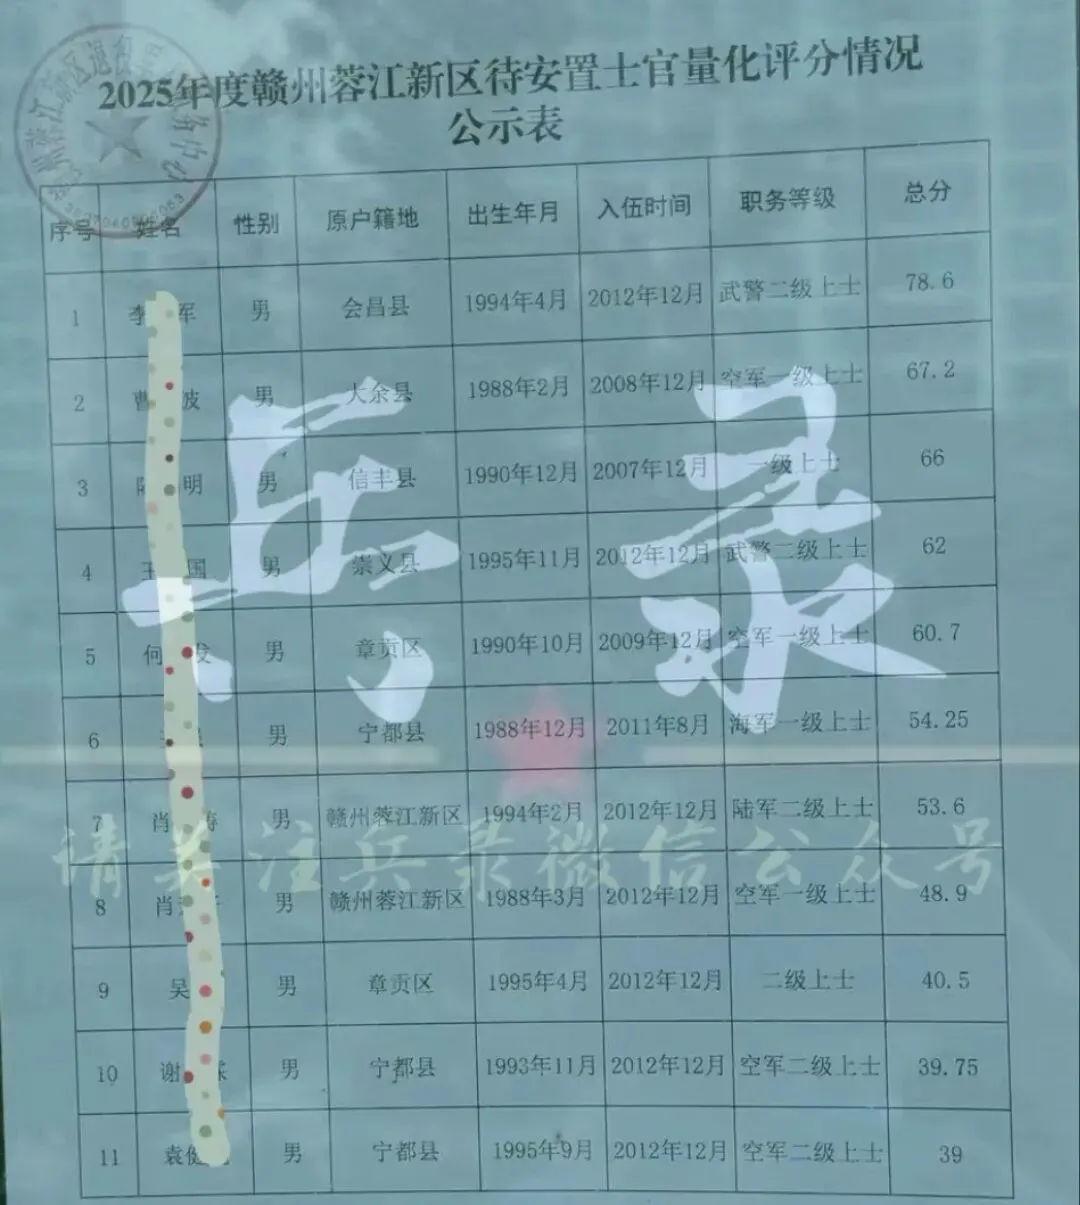 2025年度赣州蓉江新区待安置士官量化评分情况
公示表
序号 姓名 性别 原户籍地 出生年月 入伍时间 职务等级 总分
1 李 军 男 会昌县 1994年4月 2012年12月 武警二级上士 78.6
2 曹 波 男 大余县 1988年2月 2008年12月 空军一级上士 67.2
3 明 男 信丰县 1990年12月 2007年12月 一级上士 66
4 王 国 男 崇义县 1995年11月 2012年12月 武警二级上士 62
5 何 发 男 章贡区 1990年10月 2009年12月 空军一级上士 60.7
6 男 宁都县 1988年12月 2011年8月 海军一级上士 54.25
7 肖 涛 男 赣州蓉江新区 1994年2月 2012年12月 陆军二级上士 53.6
8 肖 男 赣州蓉江新区 1988年3月 2012年12月 空军一级上士 48.9
9 吴 男 章贡区 1995年4月 2012年12月 二级上士 40.5
10 谢 男 宁都县 1993年11月 2012年12月 空军二级上士 39.75
11 袁健 男 宁都县 1995年9月 2012年12月 空军二级上士 39
兵录
请关注兵录微信公众号